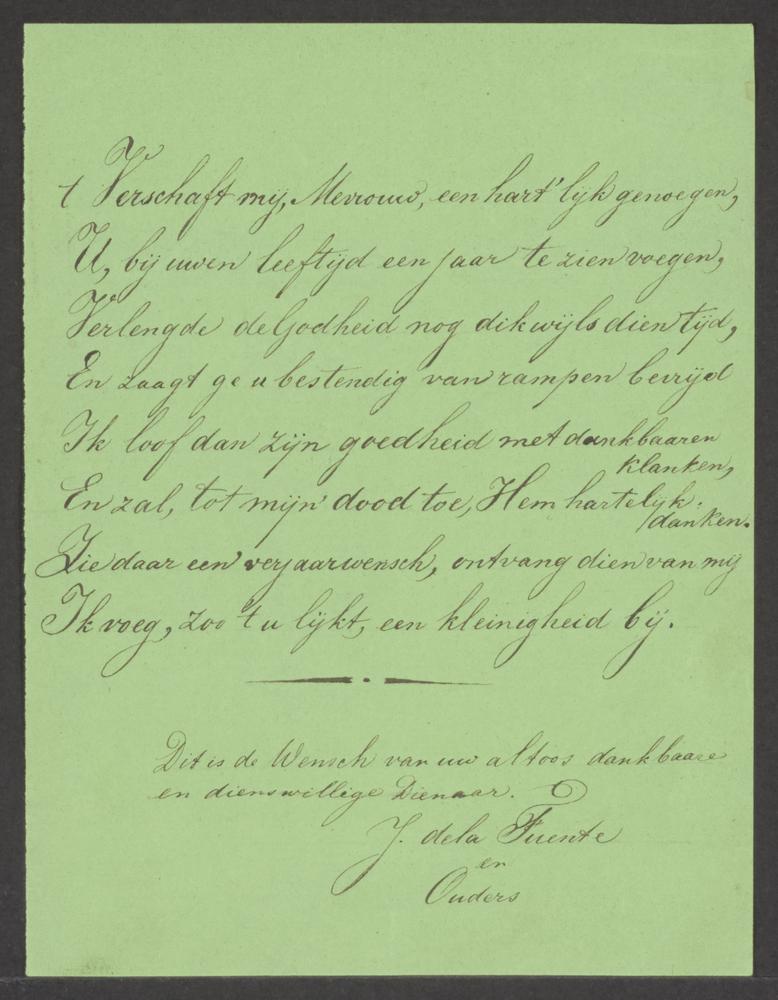 't Verschaft mij, Mevrouw, een hart'lijk genoegen,
U, bij uwen leeftijd een jaar te zien voegen,
Verlengde de Godheid nog dikwijls dien tijd,
En zaagt ge u bestendig van rampen bevrijd
Ik loof dan zijn goedheid met dankbaaren
klanken,
En zal, tot mijn dood toe, Hem hartelijk
danken.
Zie daar een verjaarwensch, ontvang dien van mij
Ik voeg, zoo 't u lijkt, een kleinigheid bij.
Dit is de Wensch van uw altoos dankbaare
en dienswillige Dienaar.
J. dela Fuente
en
Ouders